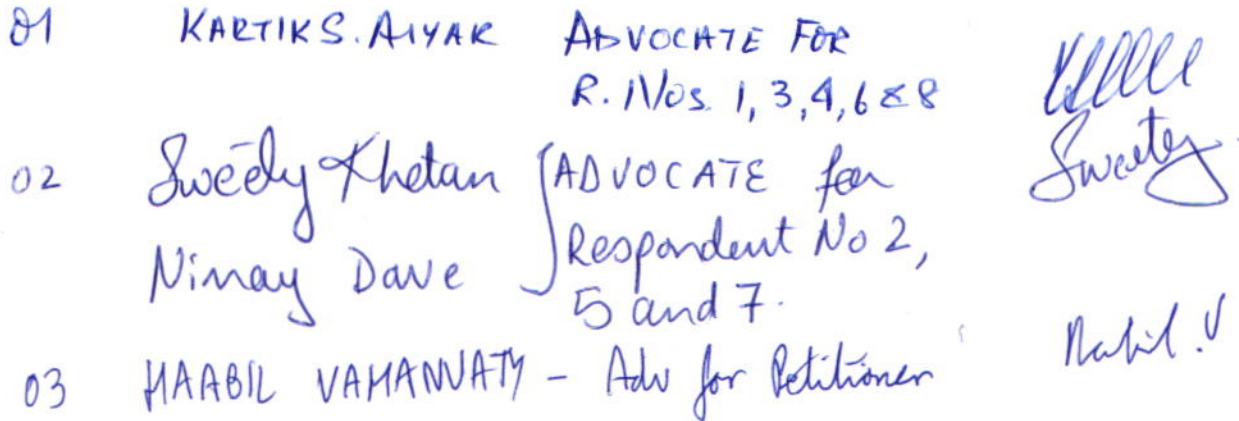 01 KARTIK S. AIYAR ADVOCATE FOR
R. Nos. 1, 3, 4, 6 & 8
02 Sweety Khetan ADVOCATE for
Ninay Dave Respondent No 2,
5 and 7.
Sweety
03 HAABIL VAHANVATY - Adv for Petitioner